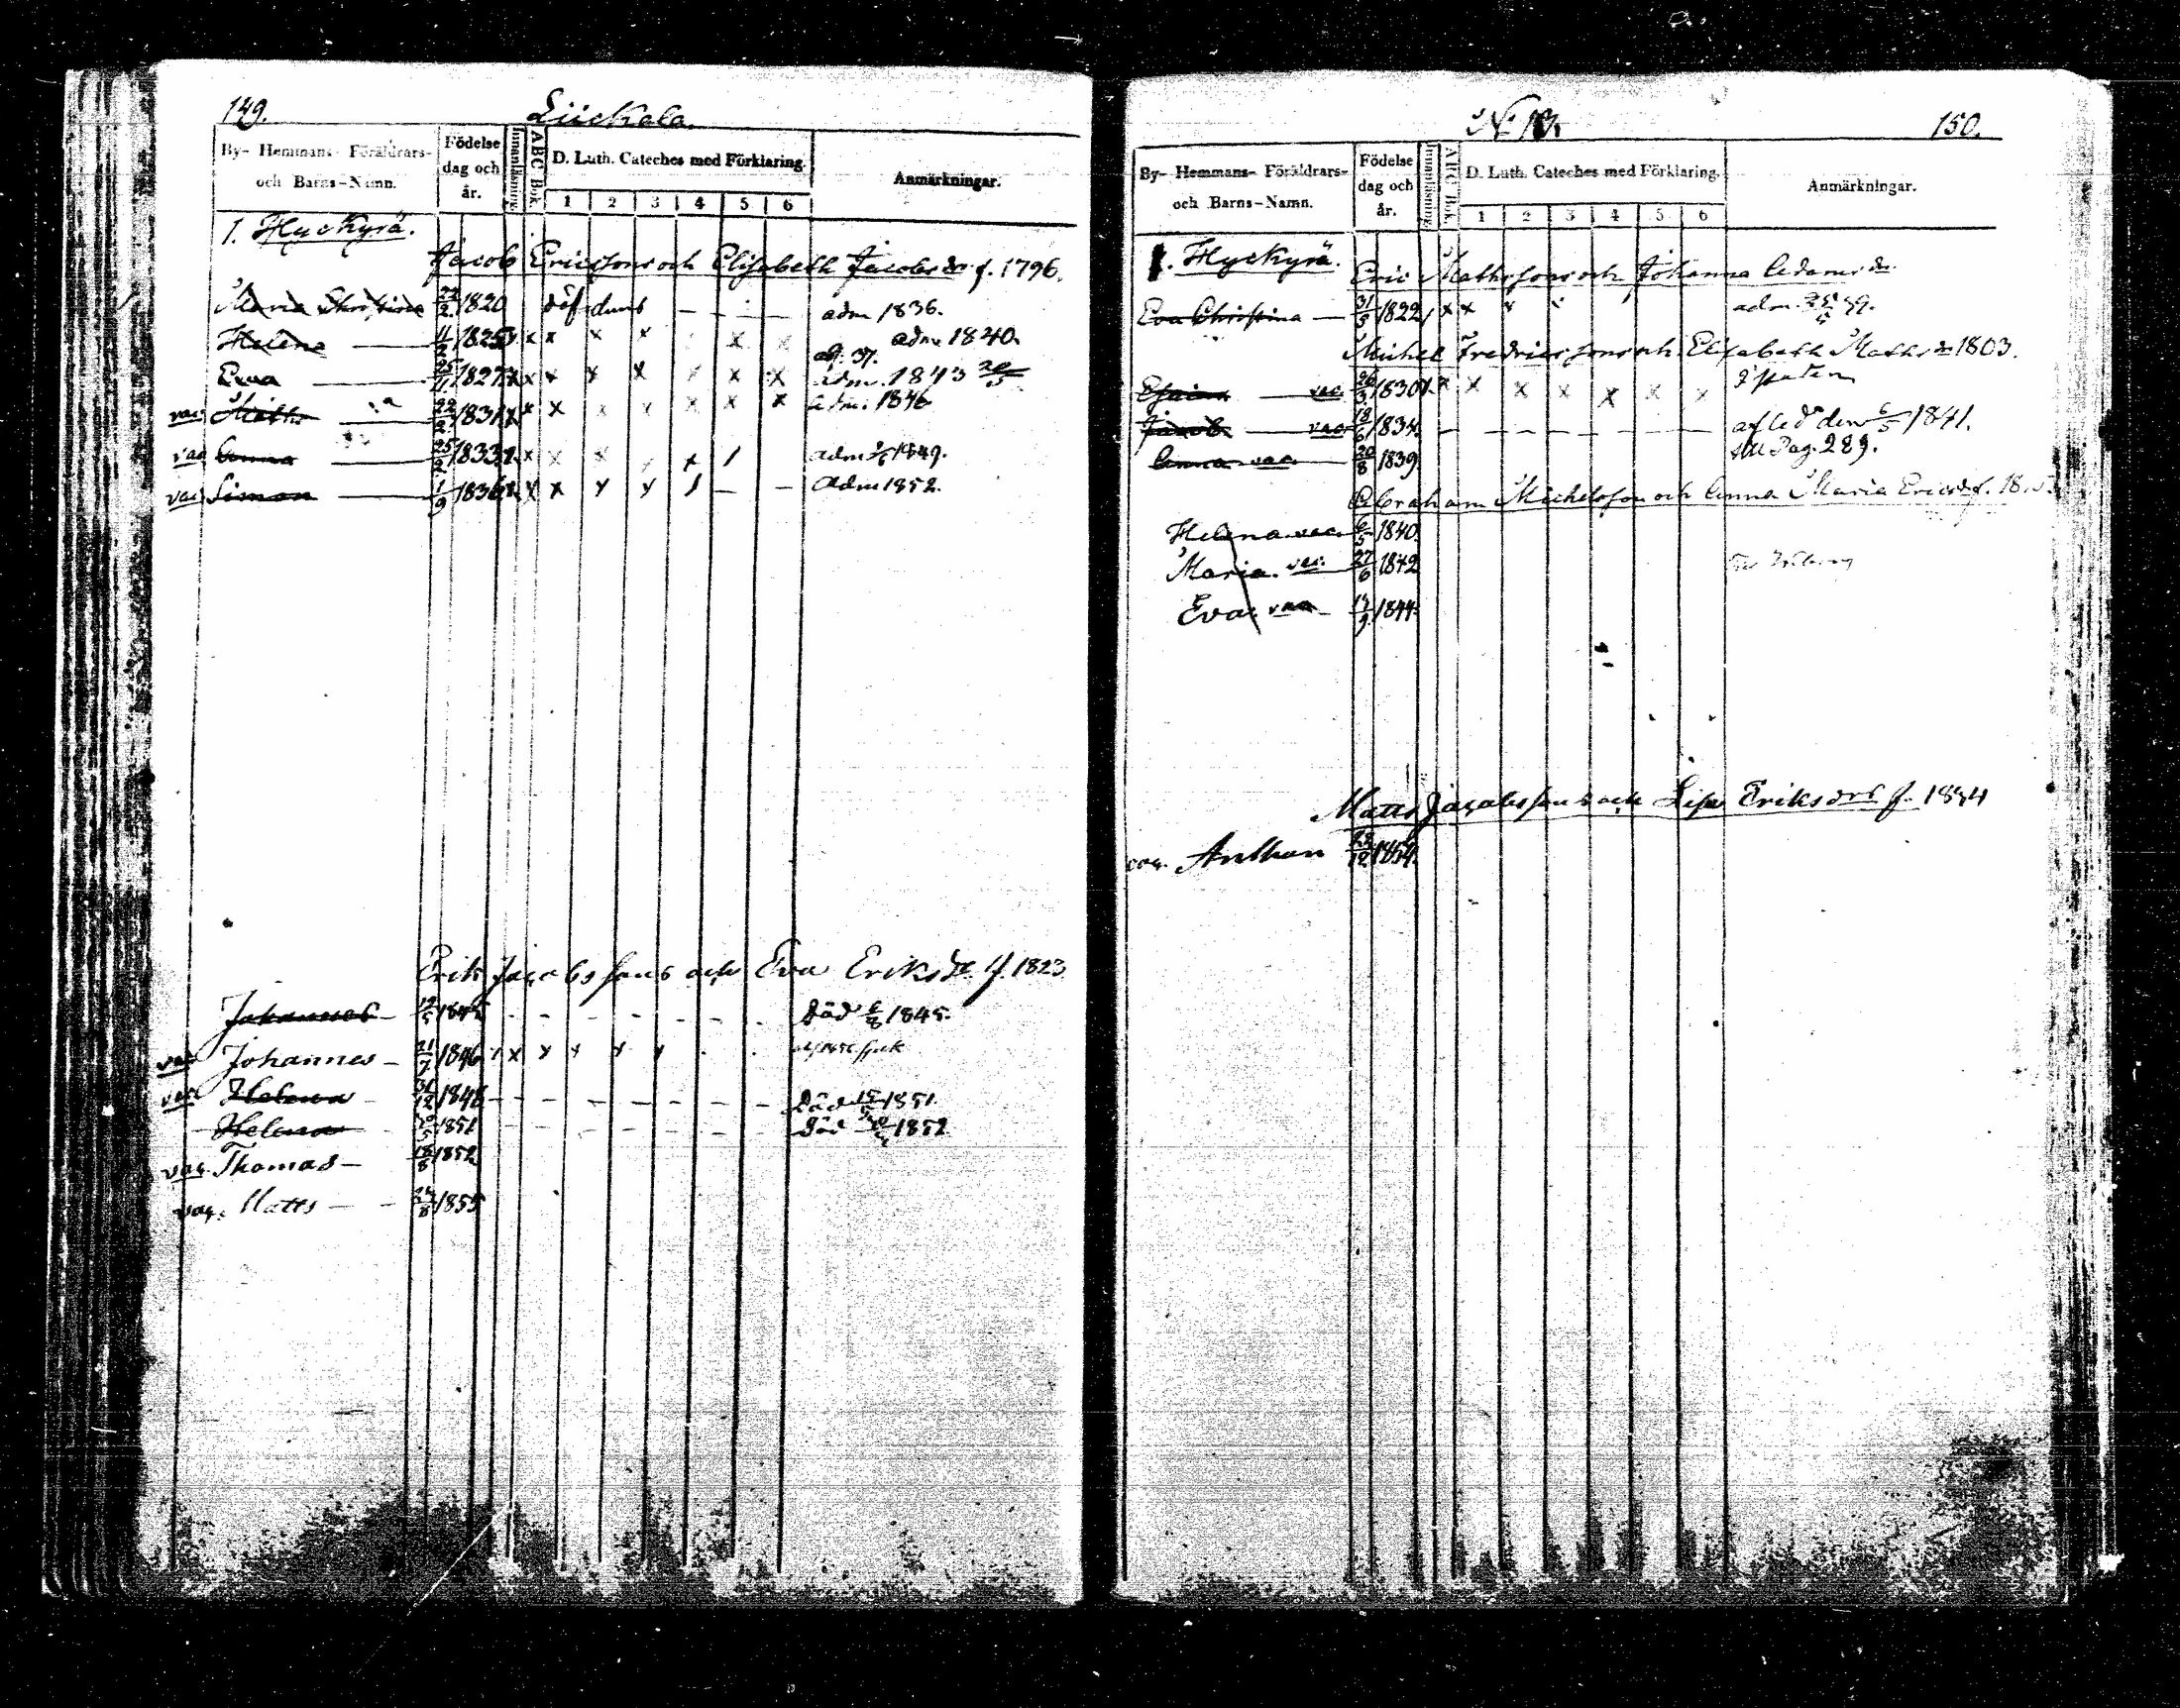 149.
Liickala.
By- Hemmans- Föräldrars-
och Barns-Namn.
Födelse
dag och
år.
Innanläsning.
ABC Bok.
D. Luth. Cateches med Förklaring.
1 2 3 4 5 6
Anmärkningar.
1. Hyckyrä.
Jacob Ericssons och Elisabeth Jacobsdr f. 1796.
Maria Christina 22/2 1820 döf dumb — — — adm 1836.
Helena — 11/2 1825 x x x x x x adm 1840.
Eva — 25/11 1827 x x x x x x x adm. 1843
vac Matts — 22/2 1831 x x x x x x x adm. 1846
vac Anna — 25/2 1833 x x x x x 1 adm 1849.
vac Simon — 1/9 1836 x x x x 1 — — Adm 1852.
Erik Jacobssons och Eva Eriksdr f. 1823
Johannes — 1845 - - - - - - Död 6/8 1845.
vac Johannes — 21/7 1846 x x x x x
vac Helena 31/12 1848 - - - - - - Död 1851
Helena 1851 - - - - - - Död 1852
vac. Thomas — 18/8 1852
vac. Matts — — 24/8 1855
N 18.
150.
By- Hemmans- Föräldrars-
och Barns-Namn.
Födelse
dag och
år.
Innanläsning.
ABC Bok.
D. Luth. Cateches med Förklaring.
1 2 3 4 5 6
Anmärkningar.
1. Hyckyrä.
Eric Mathssons och Johanna Adamsdr
Eva Christina — 31/5 1822 x x x adm. 39.
Michel Fredricssons och Elisabeth Mathsdr 1803.
Esaias — vac. 26/3 1830 x x x x x x x
Jacob — vac 18/6 1834 — — — — — — — afled den 6/5 1841.
Anna vac. 20/8 1839 till Pag. 289.
Abraham Michelsson och Anna Maria Ericsdr f.
Helena vac. 6/5 1840
Maria. vac. 27/6 1842
Eva. vac 14/9 1844
Matts Jacobssons och Lisa Eriksdrs f. 1834
vac. Anthon 1854.